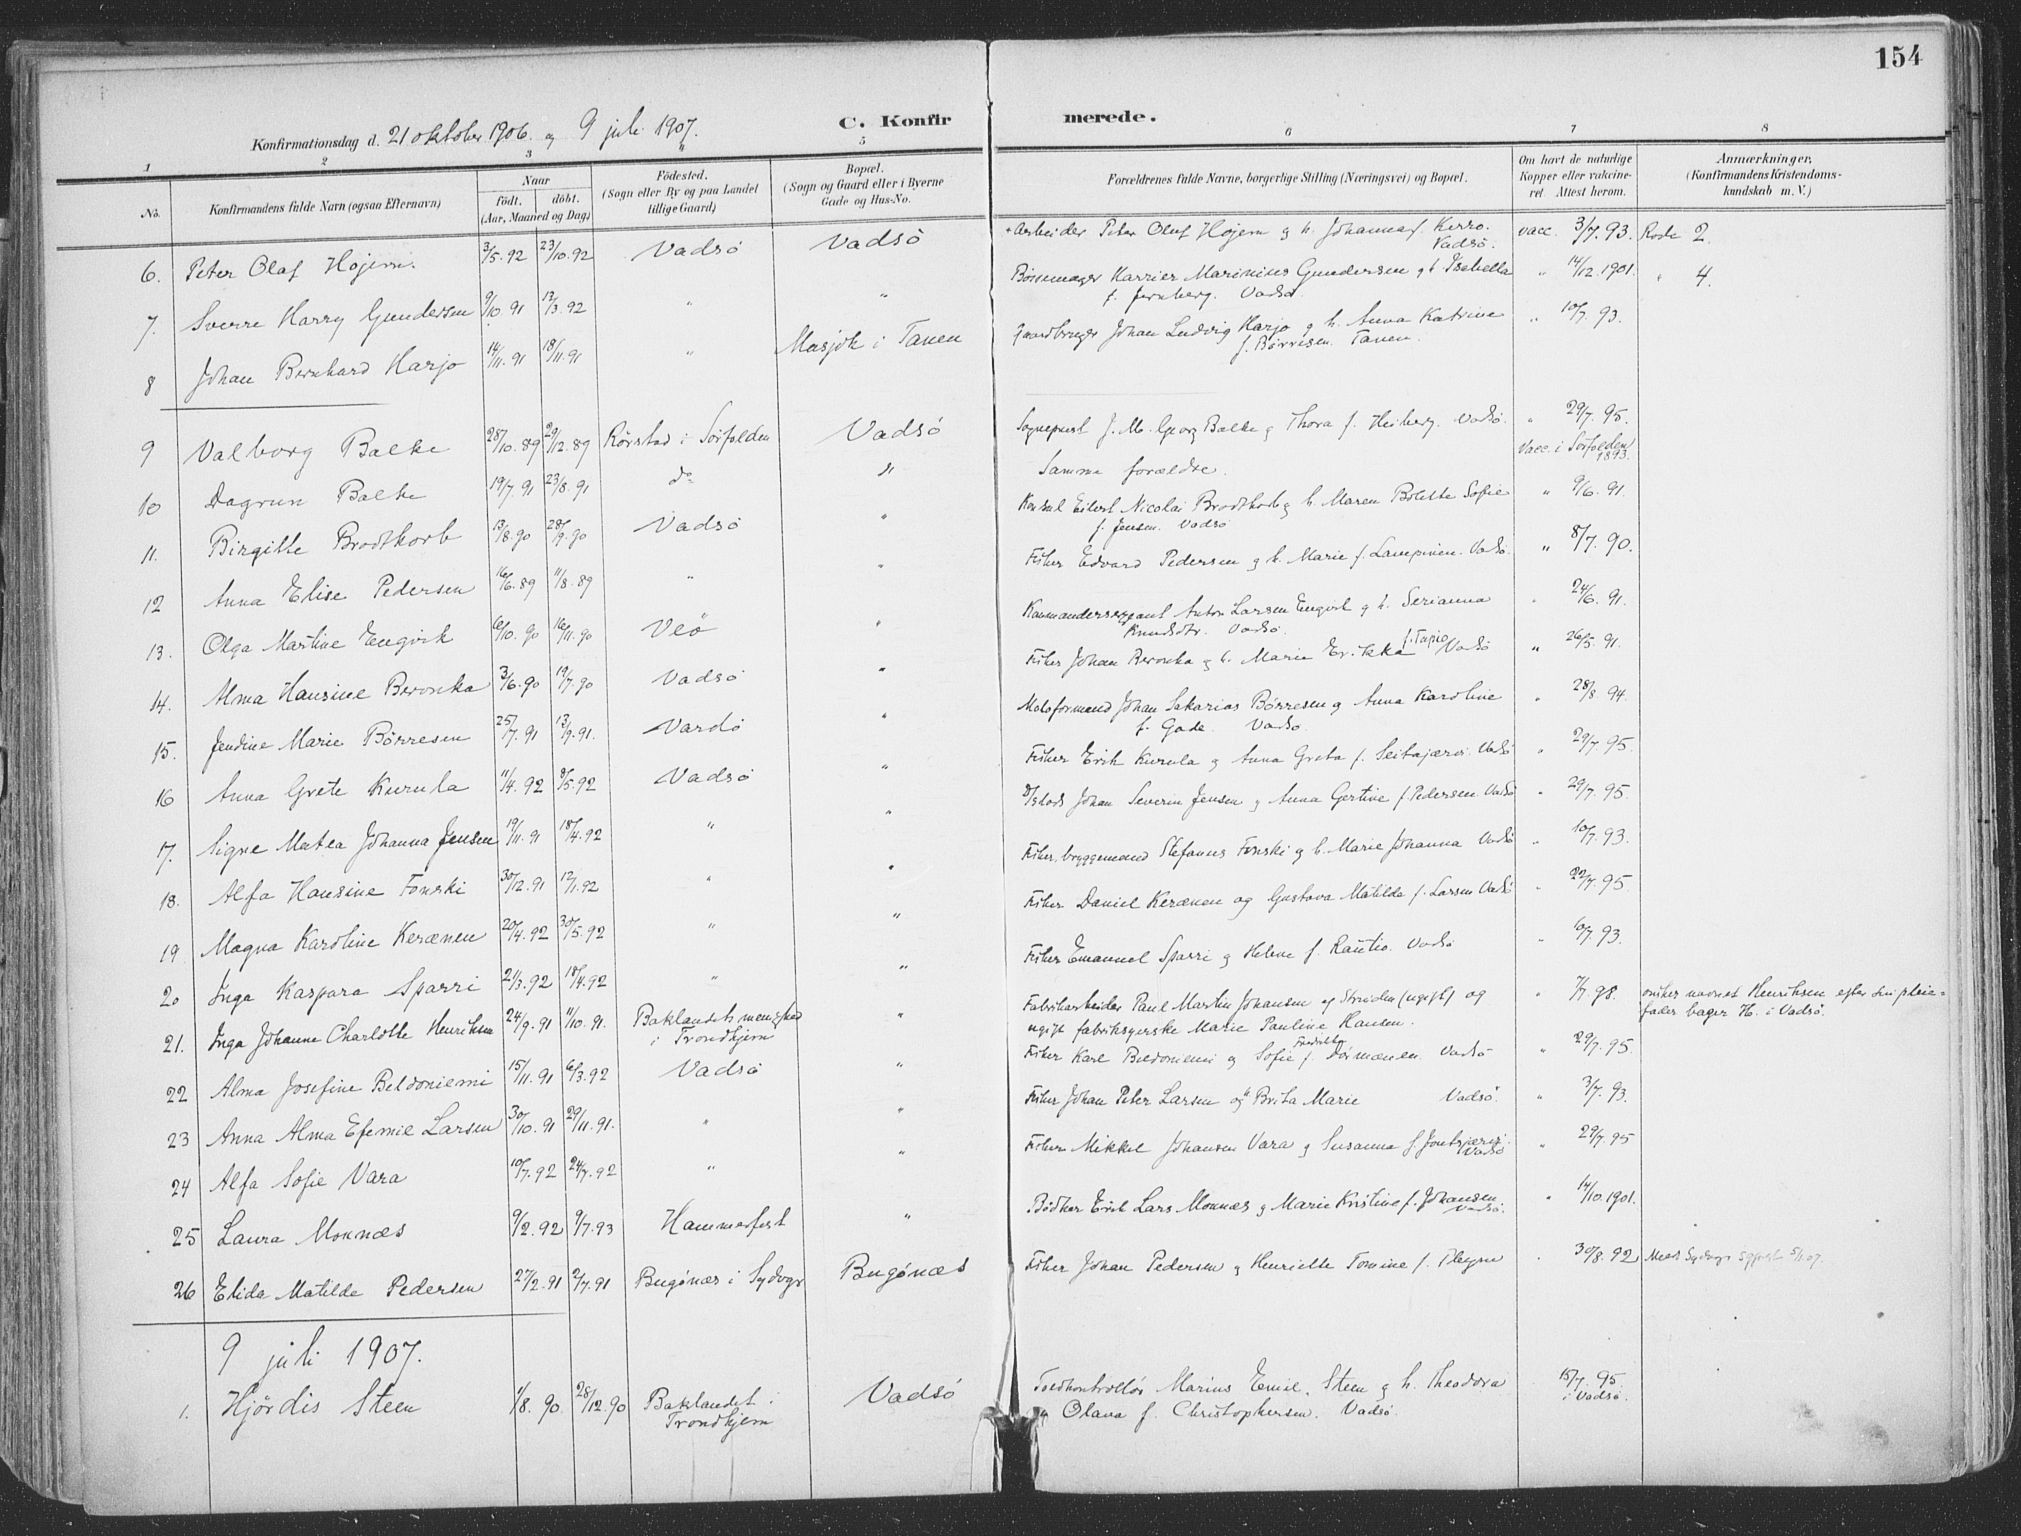 154
Konfirmationsdag d. 21 oktober 1906. og 9 juli 1907.
C. Konfirmerede.
1 2 3 4 5 6 7 8
No. Konfirmandens fulde Navn (ogsaa Efternavn) Naar født. døbt. (Aar, Maaned og Dag) Fødested. (Sogn eller By og paa Landet tillige Gaard) Bopæl. (Sogn og Gaard eller i Byerne Gade og Hus-No. Forældrenes fulde Navne, borgerlige Stilling (Næringsvei) og Bopæl. Om havt de naturlige Kopper eller vakcineret. Attest herom. Anmærkninger, (Konfirmandens Kristendomskundskab m. V.)
6. Peter Olaf Hojem. 3/5.92 23/10.92 Vadsö Vadsö + Arbeider Peter Oluf Hojem og h. Johanna f. Kerro. Vadsö. vacc. 3/7.93. Rode 2.
7. Sverre Harry Gundersen 9/10.91 13/3.92 " " Bössemager Harries Marinius Gundersen og h. Isabella f. Jernberg. Vadsö " 14/12.1901. " 4.
8 Johan Bernhard Harjo 14/11.91 18/11.91 " Masjok i Tanen Gaardbruger Johan Ludvig Harjo og h. Anna Katrine f. Börresen. Tanen. " 10/7.93.
9 Valborg Balke 28/10.89 29/12.89 Rörstad i Sörfolden Vadsö Sognepræst J. M. Georg Balke og Thora f. Heiberg. Vadsö. " 29/7.95.
10 Dagrun Balke 19/7.91 23/8.91 do " Samme forældre. Vacc. i Sörfolden 1893.
11. Birgitte Brodtkorb 13/8.90 28/9.90 Vadsö " Konsul Eilert Nicolai Brodtkorb og h. Maren Bolette Sofie f. Jensen. Vadsö " 9/6.91.
12 Anna Elise Pedersen 16/6.89 11/8.89 " " Fisker Edvard Pedersen og h. Marie f. Lampinen. Vadsö. " 8/7.90.
13. Olga Martine Engvik 6/10.90 16/11.90 Veö " Kommandersergeant Anton Larsen Engvik og h. Serianna Knudsdtr. Vadsö. " 24/6.91.
14. Alma Hansine Beronka 3/6.90 19/7.90 Vadsö " Fisker Johan Beronka og h. Marie Erikka f. Tapio Vadsö " 26/5.91.
15. Jendine Marie Börresen 25/7.91 13/9.91. Vardö " Moloformand Johan Sakarias Börresen og Anna Karoline f. Gade. Vadsö " 28/8.94.
16 Anna Grete Kurula 11/4.92 8/5.92 Vadsö " Fisker Erik Kurula og Anna Greta f. Seitajærvi. Vadsö " 29/7.95.
17. Signe Matea Johanna Jensen 19/11.91 18/4.92 " " Johan Severin Jensen og Anna Gertine f. Pedersen. Vadsö " 29/7.95.
18. Alfa Hansine Fonski 30/12.91 12/1.92 " " Fisker, bryggemand Stefanus Fonski og h. Marie Johanna Vadsö " 10/7.93.
19 Magna Karoline Kerænen 20/4.92 30/5.92 " " Fisker Daniel Kerænen og Gustava Matilde f. Larsen Vadsö " 22/7.95.
20 Inga Kaspara Sparri 21/3.92 18/4.92 " " Fisker Emanuel Sparri og Helene f. Rautio. Vadsö " 10/7.93.
21. Inga Johanne Charlotte Henriksen 24/9.91 11/10.91. Baklandets menighed i Trondhjem " Fabrikarbeider Paul Martin Johansen af Strinden (ugift) og ugift fabrikspige Marie Pauline Hansen. " 7/7.98. önsker navnet Henriksen efter sin pleiefader bager H. i Vadsö.
22 Alma Josefine Beldoniemi 15/11.91 6/3.92 Vadsö " Fisker Karl Beldoniemi og Sofie Fredrikke f. Vadsö " 29/7.95.
23 Anna Alma Efemie Larsen 30/10.91 29/11.91. " " Fisker Johan Peter Larsen og h. Brita Marie Vadsö. " 3/7.93.
24 Alfa Sofie Vara 10/7.92 24/7.92 " " Fisker Mikkel Johansen Vara og Susanna f. Vadsö " 29/7.95
25 Laura Monnæs 9/2.92 9/7.93 Hammerfest " Bödker Erik Lars Monnæs og Marie Kristine f. Johansen. Vadsö. " 14/10.1901.
26 Elida Matilde Pedersen 27/2.91 2/7.91 Bugönæs i Sydvgr Bugönæs Fisker Johan Pedersen og Henriette Tomine f. Fleyen " 30/8.92 Medd Sydvgr Sgpræst 5/1 07.
9 juli 1907.
1. Hjördis Steen 1/8.90. 28/12.90 Baklandet i Trondhjem Vadsö Toldkontrollör Marius Emil Steen og h. Theodora Olava f. Christophersen. Vadsö. 15/7.95 i Vadsö.